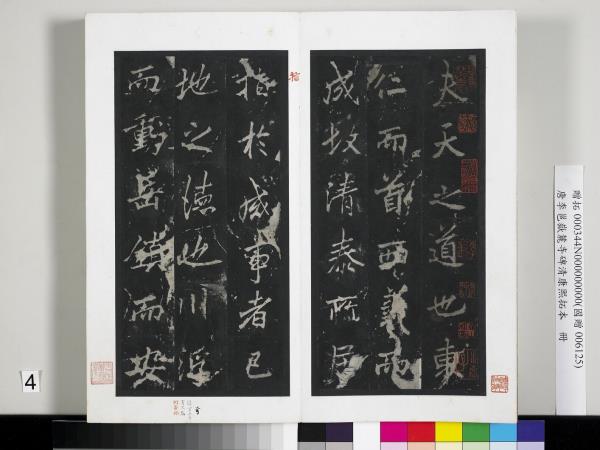 夫天之道也東
仁而首西義而
成故清泰所居
指於成事者已
地之德也川浮
而動岳鎮而安
指
贈拓 000344N000000000(國贈 006125)
唐李邕嶽麓寺碑清康熙拓本 冊
4